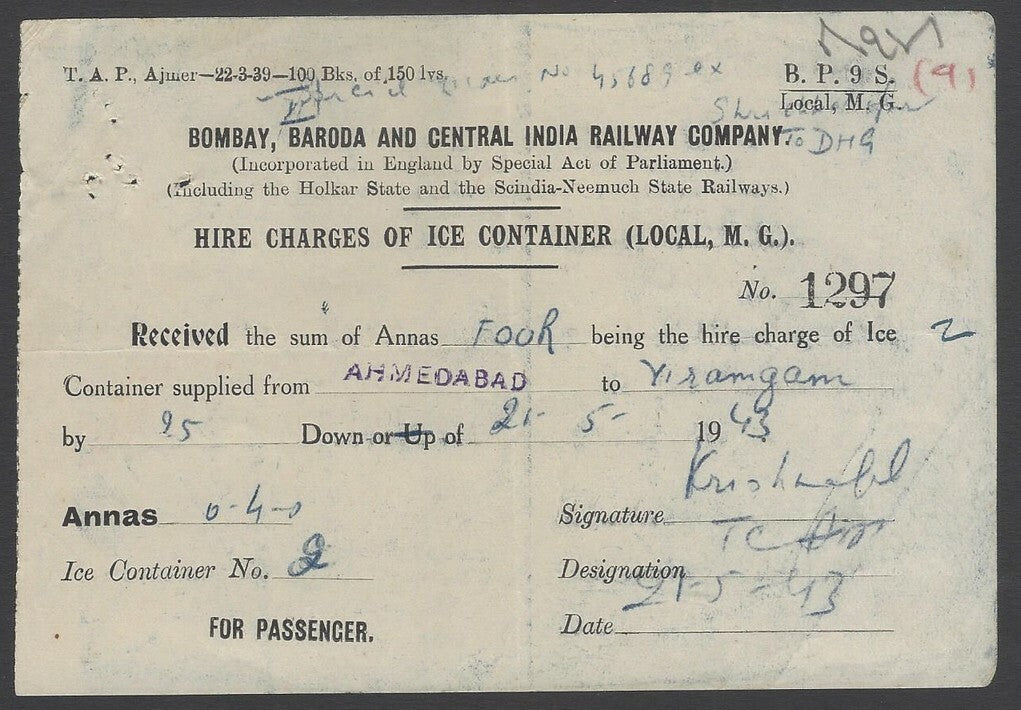 T. A. P., Ajmer—22-3-39—100 Bks. of 150 lvs.
No 45689 ex
B. P. 9 S. (9)
Local, M. G.
To DHG
BOMBAY, BARODA AND CENTRAL INDIA RAILWAY COMPANY.
(Incorporated in England by Special Act of Parliament.)
(Including the Holkar State and the Scindia-Neemuch State Railways.)
HIRE CHARGES OF ICE CONTAINER (LOCAL, M. G.).
No. 1297
Received the sum of Annas Foor being the hire charge of Ice 2
Container supplied from AHMEDABAD to Viramgam
by 95 Down or Up of 21-5-1943
Annas 0-4-0
Signature
Ice Container No. 2
Designation TC
21-5-43
FOR PASSENGER.
Date